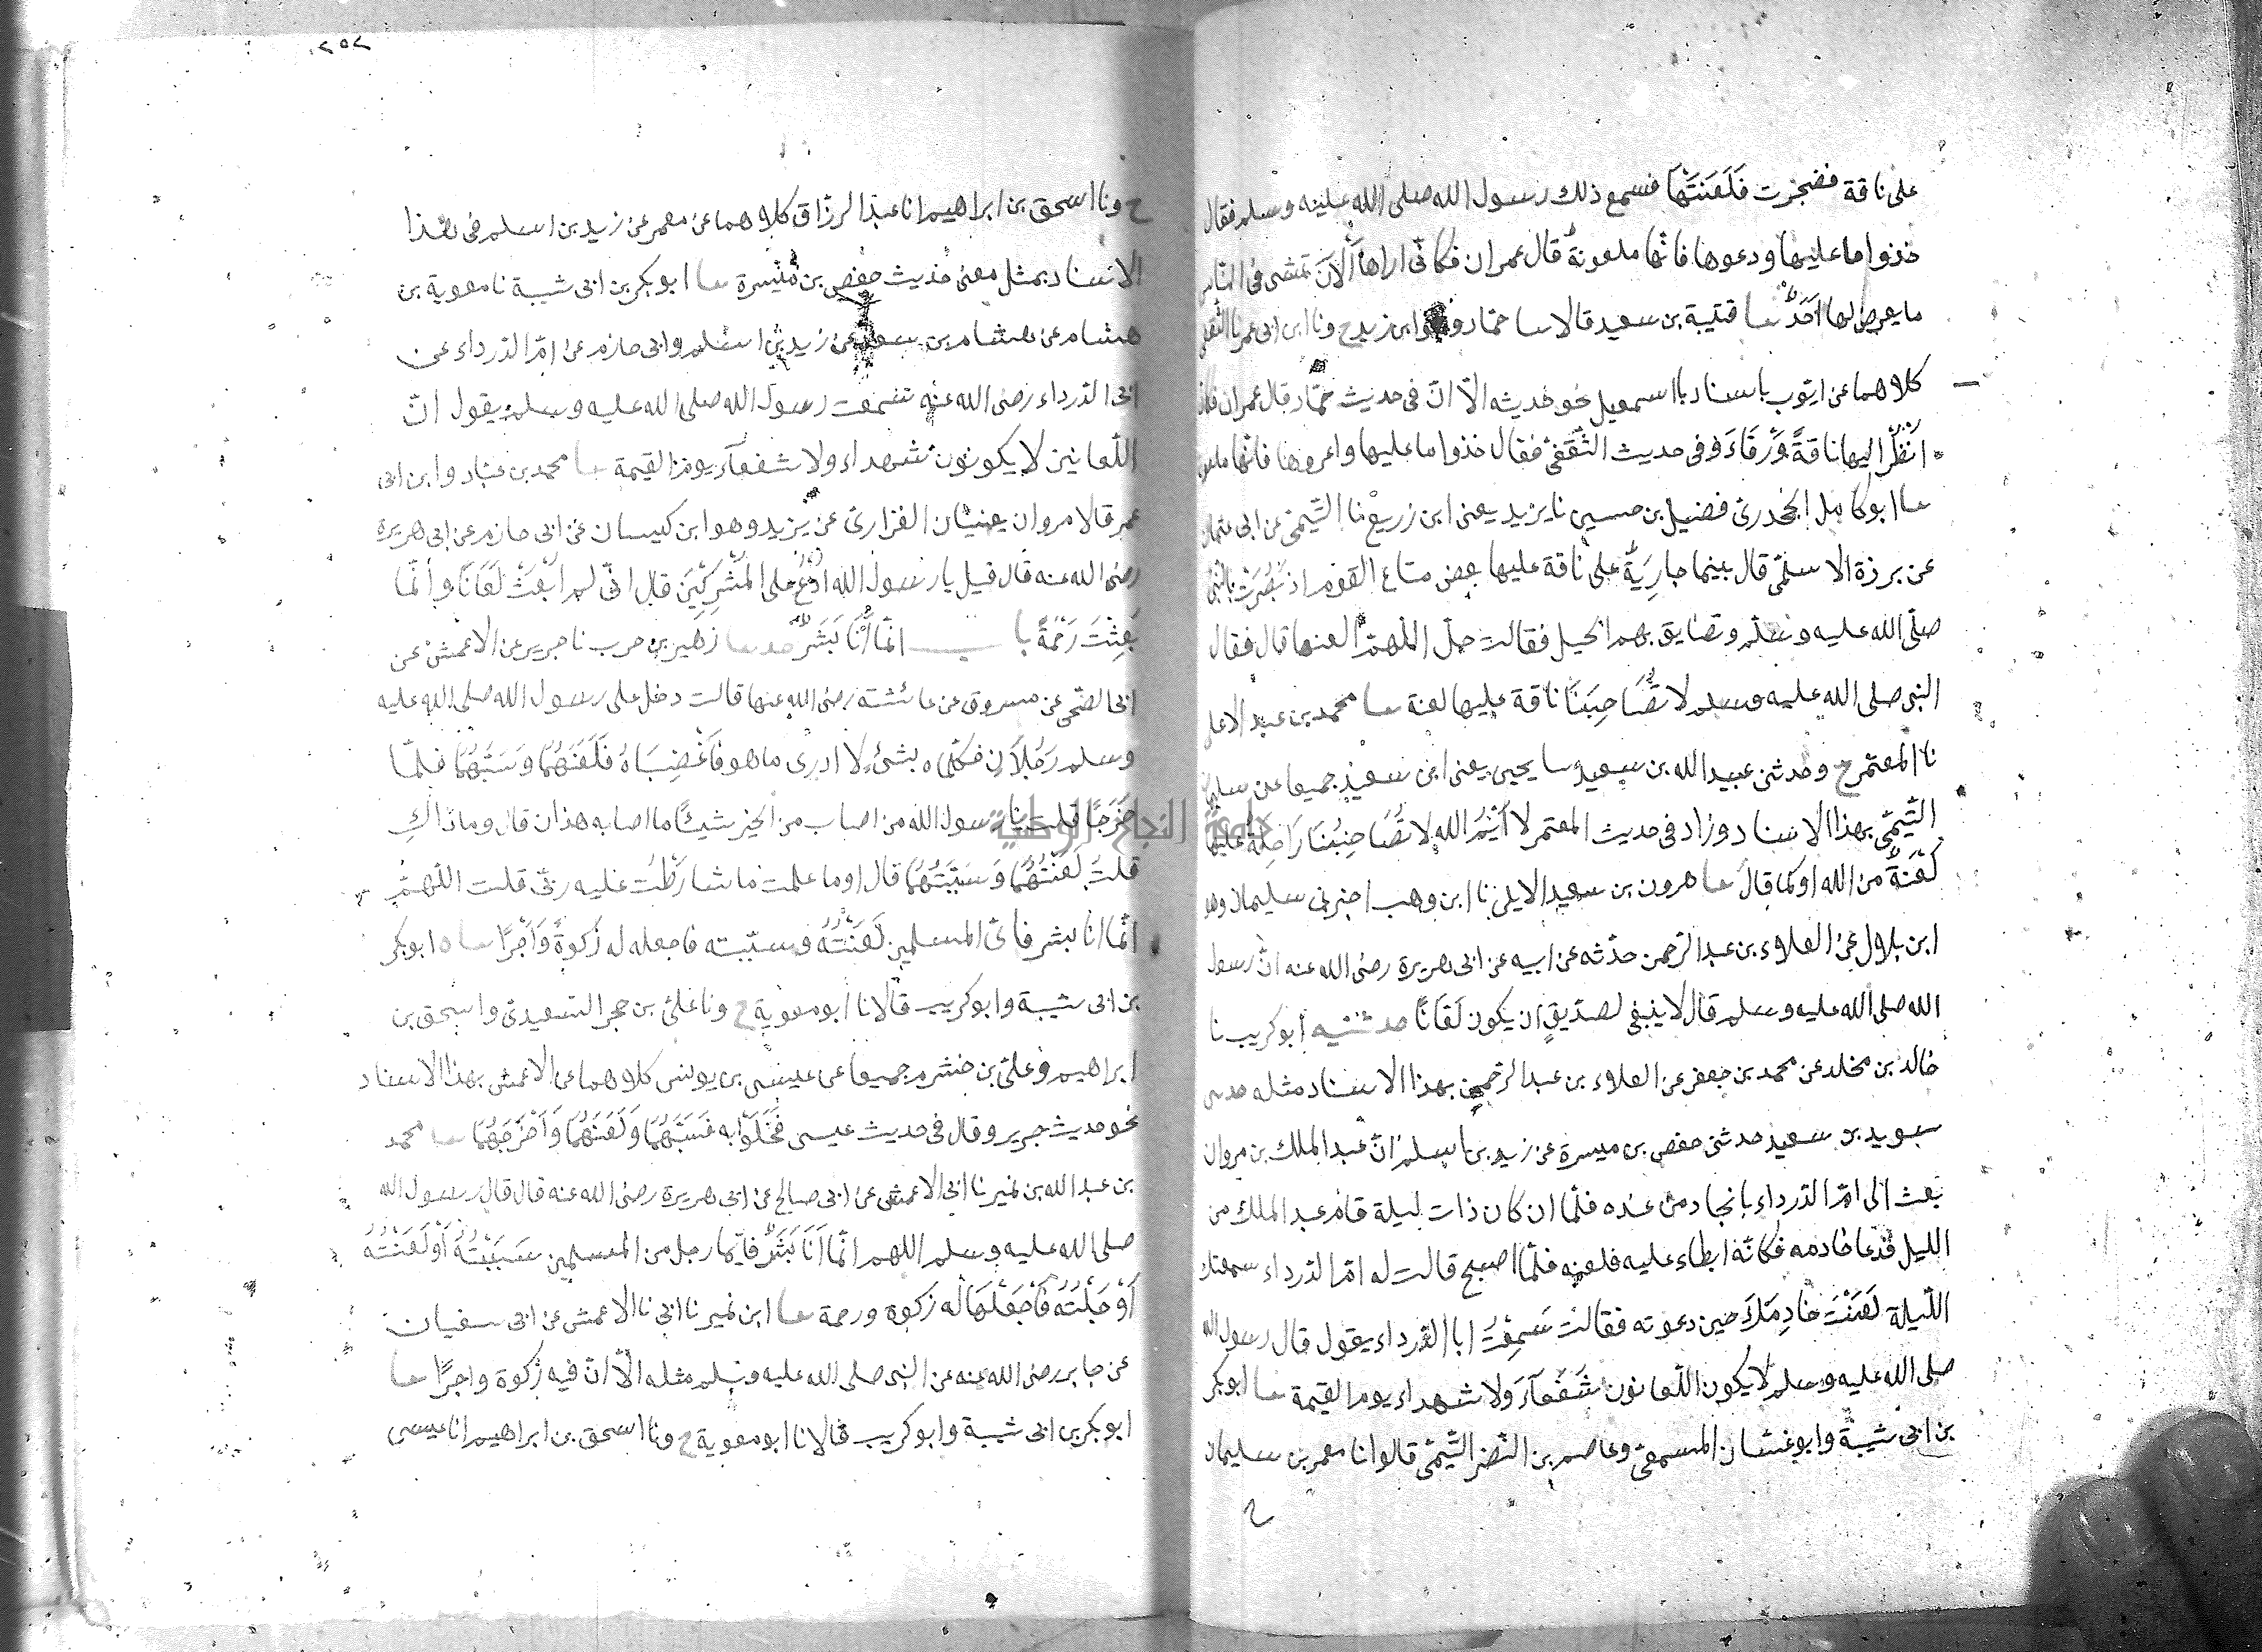 على ناقة فضجرت فَلَعَنَتْهَا فسمع ذلك رسول الله صلى الله عليه وسلم فقال
خذوا ما عليها ودعوها فانها ملعونةٌ قال عمران فكأنّى اراها اَلْآنَ تمشى فى الناس
ما يعرض لها اَحَدٌ نا قتيبة بن سعيد قالا نا حمّاد وهو ابن زيد ح ونا ابن ابى عمر نا الثقفى
كلاهما عن ايّوب باسناد اسمعيل نحو حديثه الّا انّ فى حديث حمّاد قال عمران فكانى
اَنْظُرُ اليها ناقةً وَرْقَاءَ وفى حديث الثَّقَفىّ فقال خذوا ما عليها واعروها فانّها ملعونة
نا ابو كامل الجَحْدرىّ فضيل بن حسين نا يزيد يعنى ابن زريعْ نا التّيمىّ عن ابى عثمان
عن برزة الاسلمّى قال بينما جارِيَةٌ على ناقة عليها بعض متاع القوم اذ بَصُرَتْ بالنّبىّ
صلّى الله عليه وسلّم وتضايق بهم الجبل فقالت حل اللّهمّ العنها قال فقال
النبى صلى الله عليه وسلم لا تُصَاحِبَنَا ناقة عليها لعنة نا محمد بن عبد الاعلى
نا المعتمر ح وحدثنى عبيد الله بن سعيد نا يحيى يعنى ابن سعيد جميعا عن سليمان
التّيمّى بهذا الاسناد وزاد فى حديث المعتمر لا اَيْمُ الله لا تُصَاحِبُنَا رَاحِلَةٌ عليها
لَعْنَةٌ من الله او كما قال نا هرون بن سعيد الايلى نا ابن وهب اخبرنى سليمان وهو
ابن بلال عن العلاء بن عبد الرّحمن حدّثه عن ابيه عن ابى هريرة رضى الله عنه انّ رسول
الله صلى الله عليه وسلم قال لا ينبغى لصدّيقٍ ان يكون لَعَّانًا حدثنيه ابو كريب نا
خالد بن مخلد عن محمد بن جعفر عن العلاء بن عبد الرّحمن بهذا الاسناد مثله حدثنى
سويد بن سعيد حدثنى حفص بن ميسرة عن زيد بن اسلم انّ عبد الملك بن مروان
بعث الى امّ الدّرداء بانجاد من عنده فلمّا ان كان ذات ليلة قام عبد الملك من
الليل فدعا خادمه فكأنّه ابطاء عليه فلعنه فلمّا اصبح قالت له امّ الدّرداء سمعتك
اللّيلة لَعَنْتَ خادِمَكَ حين دعوته فقالت سَمِعْتُ ابا الدّرداء يقول قال رسول الله
صلى الله عليه وسلم لا يكون اللّعانون شُفَعَآءَ ولا شهداء يوم القيمة نا ابو بكر
بن ابى شيبة وابو غسّان المسمعىّ وعاصم بن النّضر التّيمىّ قالوا نا معمر بن سليمان
ح
٢٥٢
ح ونا اسحق بن ابراهيم انا عبد الرزّاق كلاهما عن معمر عن زيد بن اسلم فى هذا
الاسناد بمثل معنى حديث حفص بن ميسرة نا ابو بكر بن ابى شيبة نا معوية بن
هشام عن هشام بن سعد عن زيد بن اسلم وابى حازم عن امّ الدّرداء عن
ابى الدّرداء رضى الله عنه سمعت رسول الله صلى الله عليه وسلم يقول انّ
اللّعانين لا يكونون شهداء ولا شفعآء يوم القيمة نا محمد بن عباد وابن ابى
عمر قالا مروان يعنيان الفزارىّ عن يزيد وهو ابن كيسان عن ابى حازم عن ابى هريرة
رضى الله عنه قال قيل يا رسول الله ادْعُ على المُشْرِكِيْنَ قال انّى لم اُبْعَثْ لَعَّانًا وانّما
بُعِثْتُ رَحْمَةً باب انّما اَنَا بَشَرٌ حدثنا زهير بن حرب نا جرير عن الاعمش عن
ابى الضّحى عن مسروق عن عائشة رضى الله عنها قالت دخل على رسول الله صلى الله عليه
وسلم رَجُلَانِ فكلّماه بشىءٍ لا ادرى ما هو فَاَغْضَبَاهُ فَلَعَنَهُمَا وَسَبَّهُمَا فلمّا
خَرَجَا قلت يا رسول الله من اصاب من الخير شيئًا ما اصابه هذان قال وما ذاكِ
قلتُ لَعَنْتَهُمَا وَسَبَبْتَهُمَا قال او ما علمت ما شارَطْتُ عليه ربّى قلت اللّهمّ
انّما انا بشر فاىّ المسلمين لَعَنْتُهُ وسبّبته فاجعله له زكوةً وَاَجْرًا نا ه ابو بكر
بن ابى شيبة وابو كريب قالا نا ابو معوية ح ونا علىّ بن حجر السّعيدىّ واسحق بن
ابراهيم وعلىّ بن خشرم جميعا عن عيسى بن يونس كلاهما عن الاعمش بهذا الاسناد
نحو حديث جرير وقال فى حديث عيسى فَخَلَوَا به فَسَبَّهُمَا وَلَعَنَهُمَا وَاَخْرَجَهُمَا نا محمد
بن عبد الله بن نمير نا ابى الاعمش عن ابى صالح عن ابى هريرة رضى الله عنه قال قال رسول الله
صلى الله عليه وسلم اللهم انّما اَنَا بَشَرٌ فايّما رجل من المسلمين سَبَبْتُهُ اَوْ لَعَنْتُهُ
اَوْ جَلَدْتُهُ فَاجْعَلْهَا لَه زكوة ورحمة نا ابن نمير نا ابى نا الاعمش عن ابى سفيان
عن جابر رضى الله عنه عن النبى صلى الله عليه وسلم مثله الّا انّ فيه زكوة واجرًا نا
ابو بكر بن ابى شيبة وابو كريب قالا نا ابو معوية ح ونا اسحق بن ابراهيم انا عيسى
جامعة النجاح الوطنية